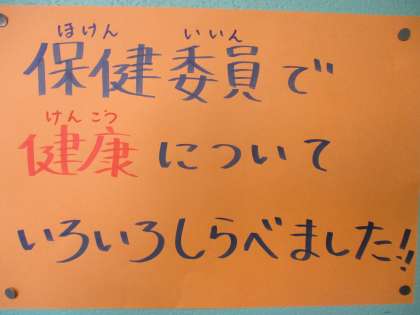 ほけん いいん
保健委員で
けんこう
健康について
いろいろしらべました!!